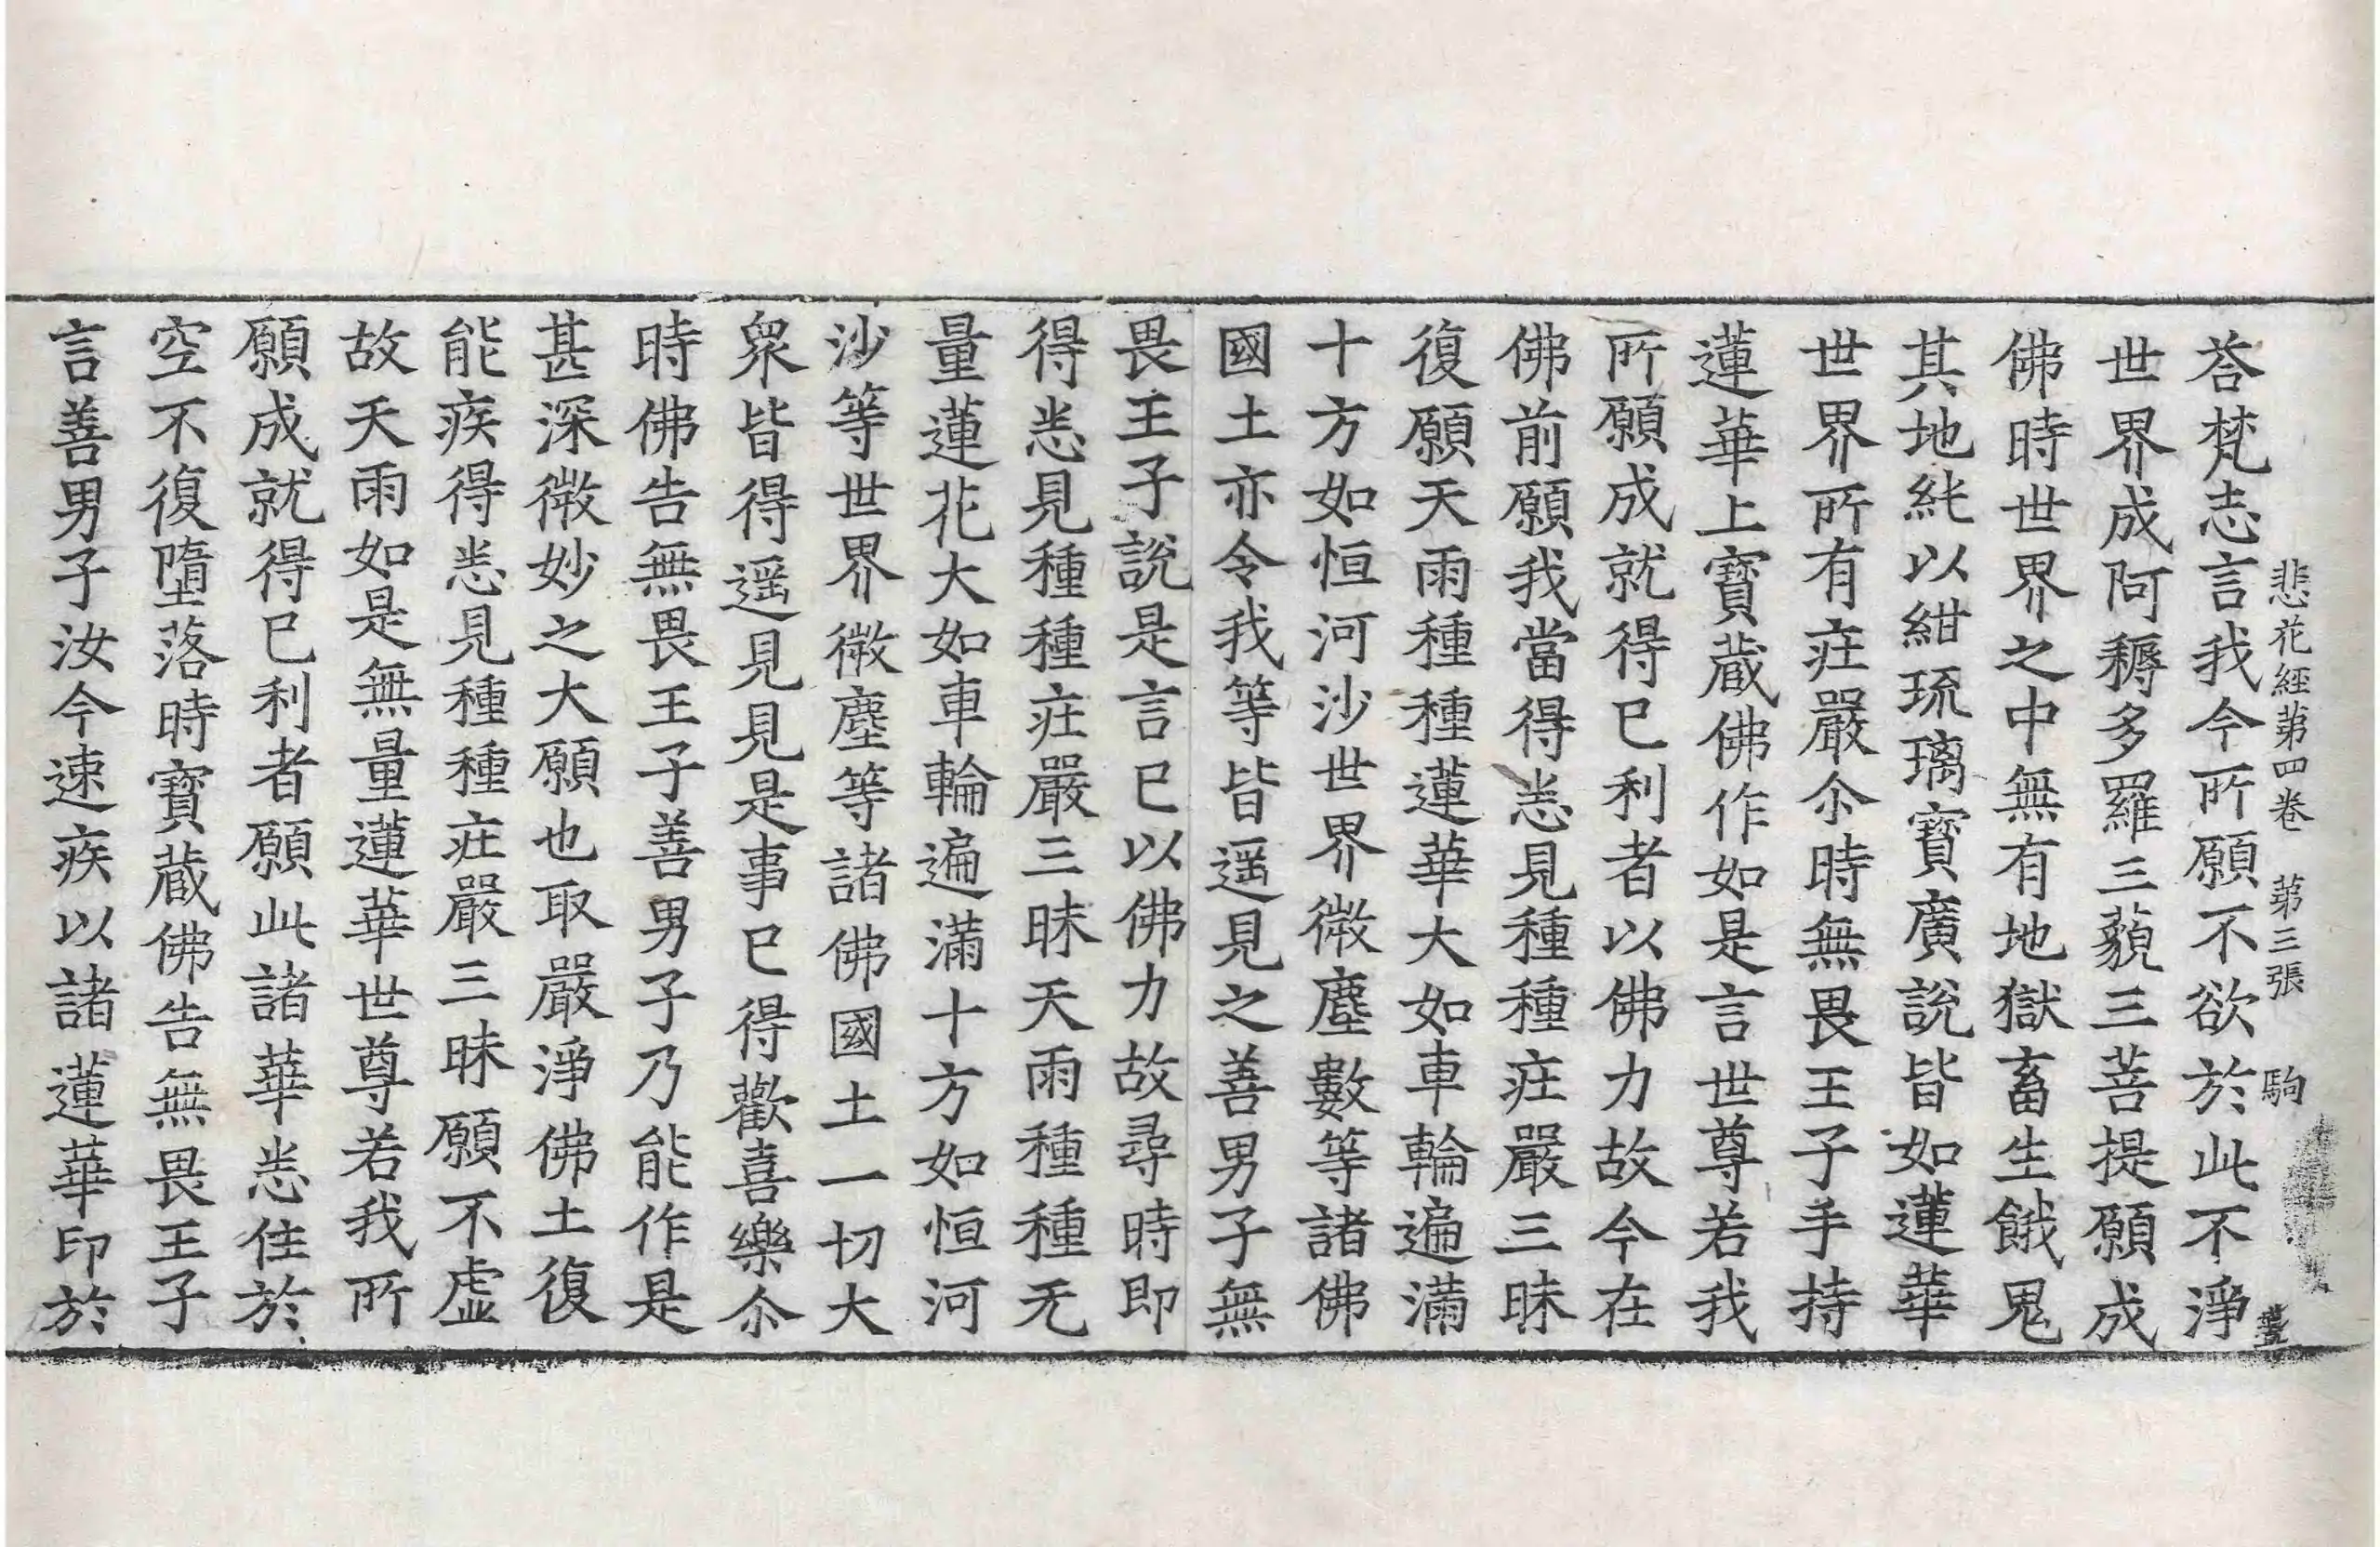 悲花經第四卷　第三張　駒
荅梵志言我今所願不欲於此不淨
世界成阿耨多羅三藐三菩提願成
佛時世界之中無有地獄畜生餓鬼
其地純以紺琉璃寶廣說皆如蓮華
世界所有庄嚴尒時無畏王子手持
蓮華上寶蔵佛作如是言世尊若我
所願成就得已利者以佛力故今在
佛前願我當得悉見種種庄嚴三昧
復願天雨種種蓮華大如車輪遍滿
十方如恒河沙世界微塵數等諸佛
國土亦令我等皆遥見之善男子無
畏王子說是言已以佛力故尋時即
得悉見種種庄嚴三昧天雨種種无
量蓮花大如車輪遍滿十方如恒河
沙等世界微塵等諸佛國土一切大
衆皆得遥見見是事已得歡喜樂尒
時佛告無畏王子善男子乃能作是
甚深微妙之大願也取嚴淨佛土復
能疾得悉見種種庄嚴三昧願不虛
故天雨如是無量蓮華世尊若我所
願成就得已利者願此諸華悉住於
空不復墮落時寶蔵佛告無畏王子
言善男子汝今速疾以諸蓮華印於